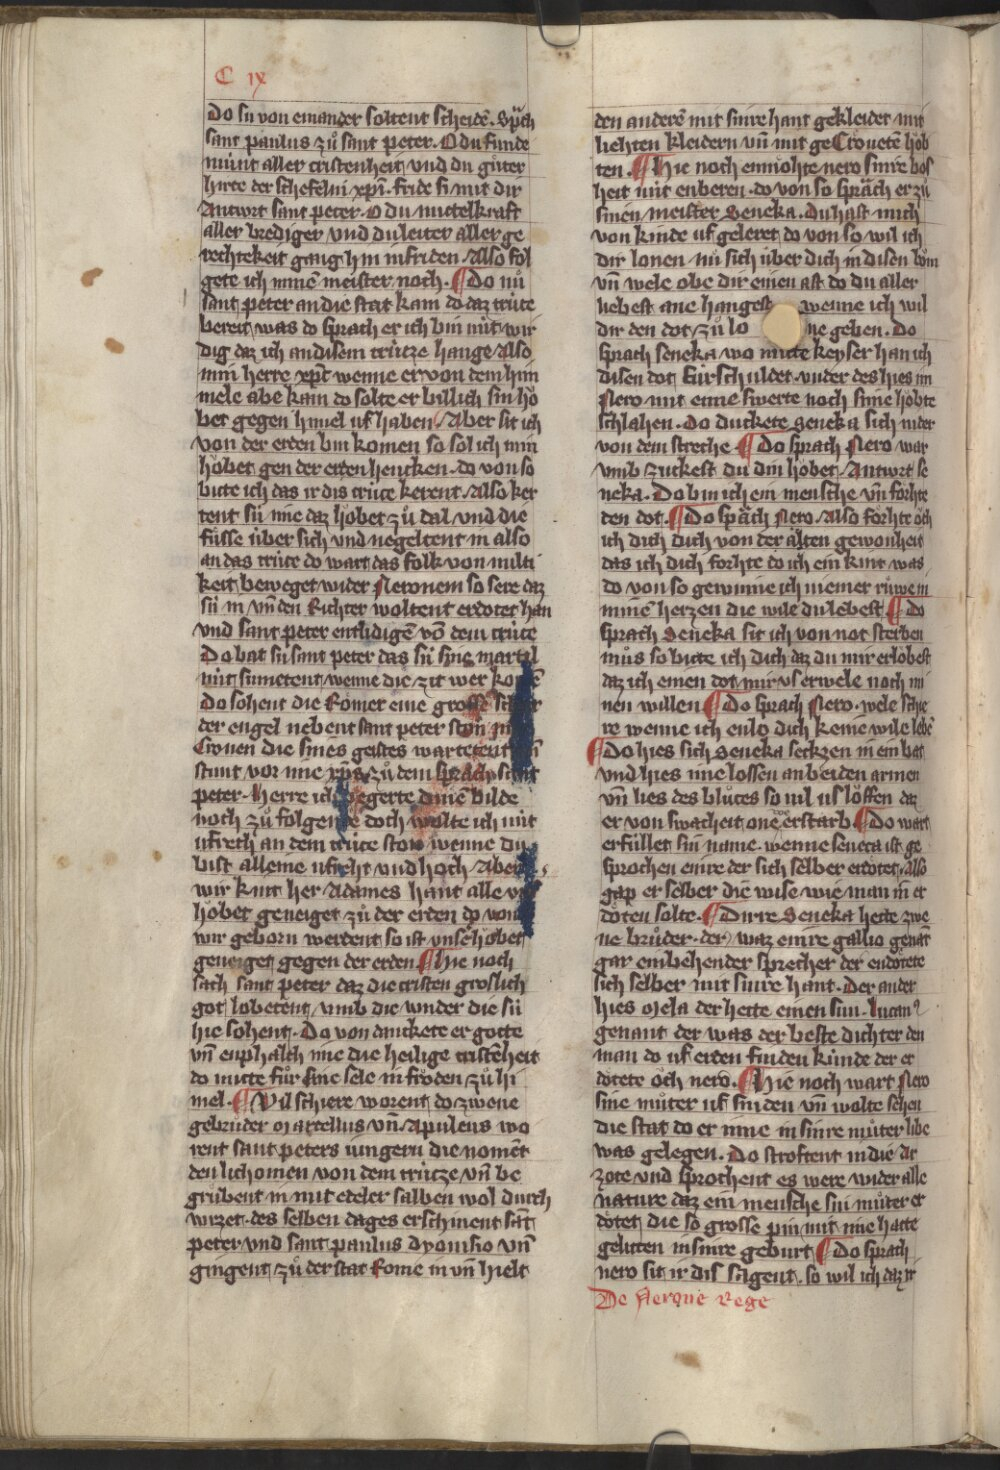 C ix
Do sü von einander soltent scheidē. Sp̈ch
sant paulus zuͦ sant peter. O du funde
münt aller cristenheit vnd du guͦter
hirte der schefelin xp̄i. fride si mit dir
Antwort sant peter. O du mittelkraft
aller brediger vnd du leiter aller ge
rechtekeit gang hin in friden. Also fol
gete ich minē meister noch. ¶ Do nuͦ
sant peter an die stat kam do daz crüce
bereit was do sprach er ich bin nüt wir
dig daz ich an disem crütze hange. Also
min herre xp̄c wenne er von dem him
mele abe kam do solte er billich sin hoͤ
bet gegen himel uf haben. Aber sit ich
von der erden bin komen so sol ich min
hoͤbet gen der erden hencken. do von so
bitte ich das ir dis crüce kerent. Also ker
tent sü mie daz hoͤbet zuͦ dal vnd die
fuͤsse über sich vnd negeltent in also
an das crüce do wart das folk von milti
keit beweget wider Neronem so sere daz
sü in vn̄ den Richter woltent ertoͤtet han
vnd sant peter entlidigē vō dem crüce
Do bat sü sant peter das sü sine martil
nüt sumetent wenne die zit wer komē
Do sohent die Romer eine grosse
der engel nebent sant peter ston
Cronen die sines geistes wartetent
stunt vor mie xp̄s zuͦ dem sprach sant
peter. Herre ich begerte dinē bilde
noch zuͦ folgende doch wolte ich nüt
ufreht an dem crüce ston wenne du
bist alleine ufreht vnd hoch. Aber
wir kint her Adames hant alle
hoͤbet geneiget zuͦ der erden do von
wir geborn werdent so ist vnse hoͤbet
geneiget gegen der erden. ¶ Hie noch
sach sant peter daz die cristen groslich
got lobetent, vmb die wnder die sü
hie sohent. Do von danckete er gotte
vn̄ enphalch mie die heilige cristēheit
do mitte für sine sele in froͤden zuͦ hi
mel. ¶ Vil schiere worent do zwene
gebruͤder Martellus vn̄ Apuleus wo
rent sant peters iungern die nomēt
den lichomen von dem crütze vn̄ be
gruͤbent in mit edeler salben wol durch
wirzet. des selben dages erschinent sāt
peter vnd sant paulus dyonisio vn̄
gingent zuͦ der stat Rome in vn̄ hielt
den anderē mit sinre hant gekleidet mit
liehten kleidern vn̄ mit geCronetē hoͤb
ten. ¶ Hie noch enmohte nero sinre bos
heit nüt enberen. do von so spräch er zuͦ
sinen meister Seneka. Du hast mich
von kinde uf geleret do von so wil ich
dir lonen nuͦ sich über dich in disen boͮm
vn̄ wele obe dir einen ast do du aller
liebest ane hangest wenne ich wil
dir den dot zuͦ lo ne geben. Do
sprach seneka wo mitte keyser han ich
disen dot fürschuldet. vnder des hies im
Nero mit eime swerte noch sime hoͤbte
schlahen. Do duckete Seneka sich nider
von dem streche. ¶ Do sprach Nero war
vmb zuckest du din hoͤbet. Antwrt se
neka. Do bin ich ein mensche vn̄ förhte
den dot. ¶ Do spräch Nero. Also förhte oͮch
ich dich duch von der alten gewonheit
das ich dich forhte do ich ein kint was.
do von so gewinne ich niemer ruͦwe in
minē herzen die wile du lebest ¶ Do
sprach Seneka sit ich von not sterben
muͦs so bitte ich dich daz du mir erlobest
daz ich einen dot mir us erwele noch mi
nen willen ¶ Do sprach Nero. wele schie
re wenne ich enlo dich keine wile lebē
¶ Do hies sich Seneka setkzen in ein bat
vnd hies ime lossen an beiden armen
vn̄ lies des bluͦtes so uil us loͤffen daz
er von swacheit one erstarb. ¶ Do wart
erfüllet sin name. wenne seneca ist ge
sprochen einre der sich selber ertoͤtet. Also
gap er selber die wise wie man in er
doͤten solte. ¶ Dirre Seneka hette zwe
ne bruͤder. der waz einre gallio genāt
gar ein behender sprecher der endoͤtete
sich selber mit sinre hant. Der ander
hies Mela der hette einen sun. lucan9
genant der was der beste dichter den
man do uf erden finden kunde der er
doͤtete oͮch nero. ¶ Hie noch wart Nero
sine muͦter uf sniden vn̄ wolte sehen
die stat do er inne in sinre muͦter libe
was gelegen. Do stroftent in die Ar
zote vnd sprochent es were wider alle
nature daz ein mensche sin muͦter er
doͤtet die so grosse pin mit mie hatte
gelitten in sinre geburt ¶ Do sprach
nero sit ir dis sagent. so wil ich daz ir
De Nerone rege